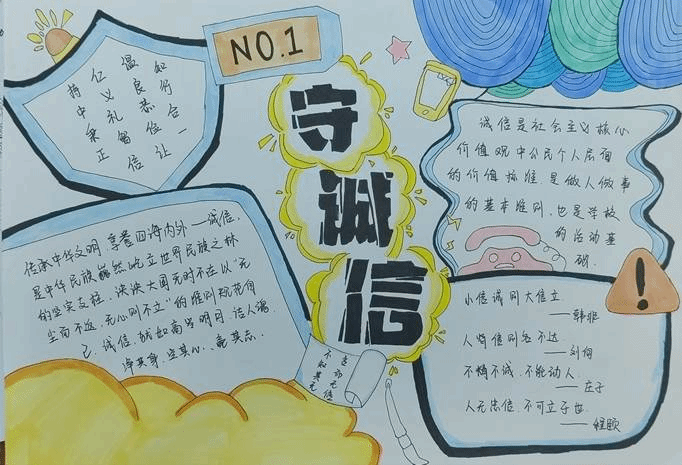 NO.1
守
诚
信
知行合一
温良恭俭让
仁义礼智信
持中秉正
诚信是社会主义核心
价值观中公民个人层面
的价值标准,是做人做事
的基本准则,也是学校
的活动基
础.
传承中华文明,享誉四海内外一诚信,
是中华民族巍然屹立世界民族之林
的坚实支柱,泱泱大国无时不在以“无
而不远,无心则不立”的准则规范自
己.诚信,就如明月,洁人
净其身,定其心,亮其志.
无信
不知其
小信诚则大信立
——韩非
人背信则名不达
——刘向
不精不诚,不能动人.
——庄子
人无忠信,不可立于世
——程颐